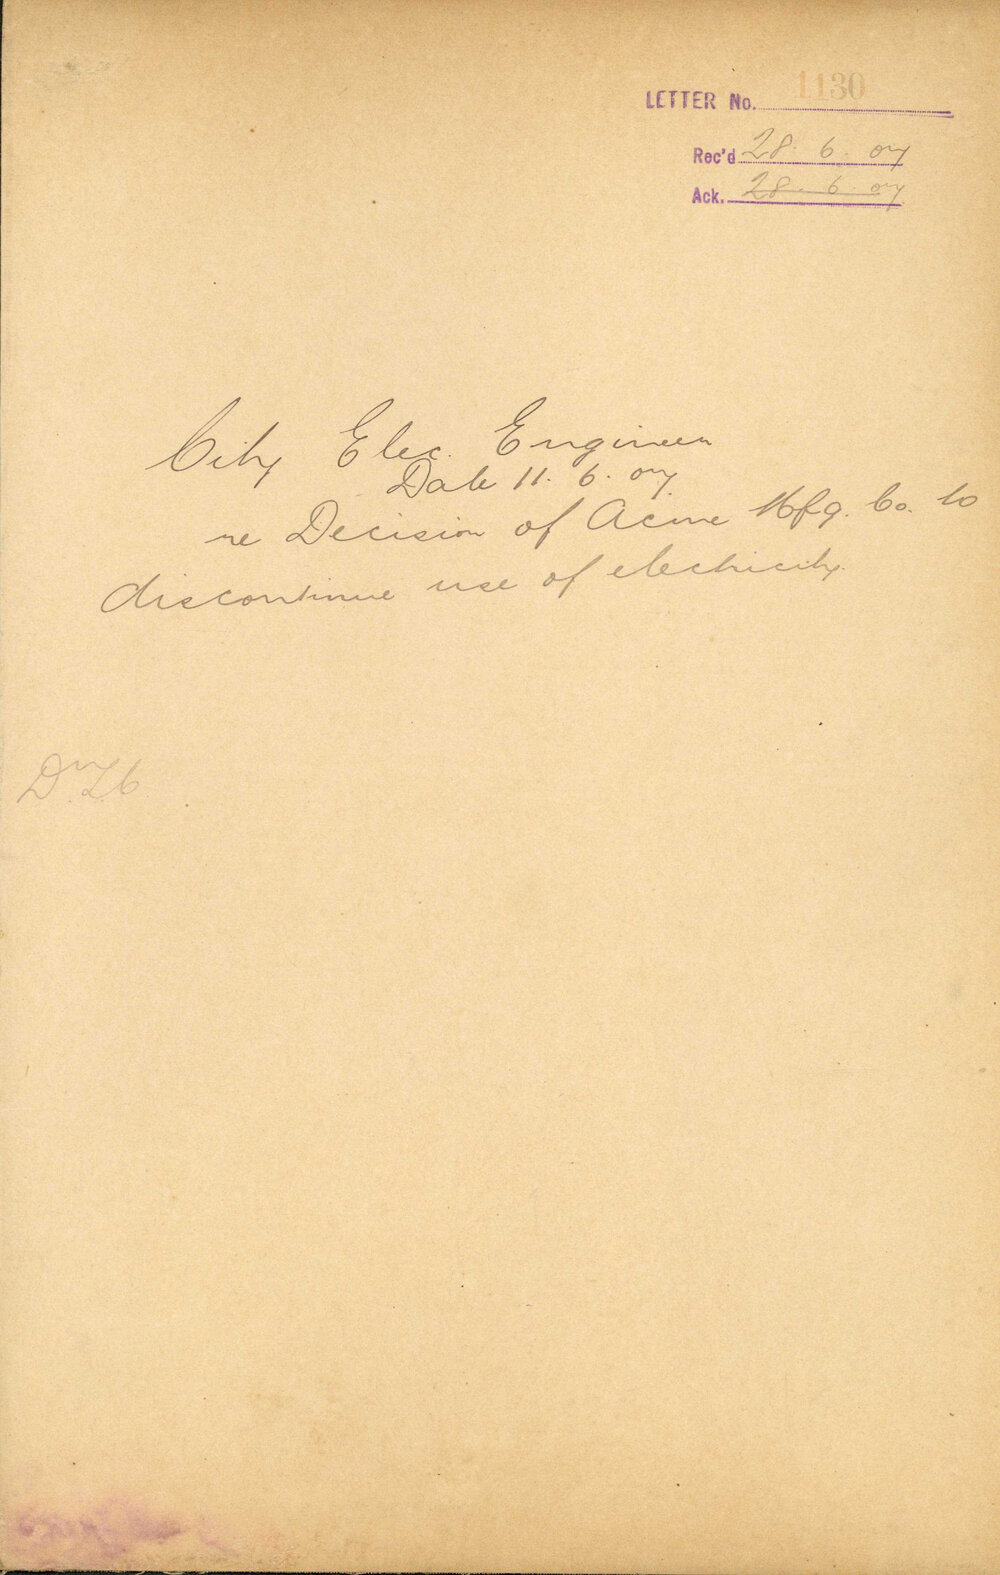 LETTER No. 1130
Rec'd 28. 6. 07
Ack. 28. 6. 07
City Elec. Engineer
Date 11. 6. 07
re Decision of Acme Mfg. Co. to
discontinue use of electricity.